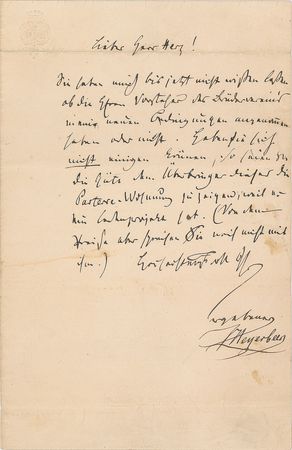 Lieber Herr Herz!
Sie haben mich bis jetzt nicht wissen lassen
ob die Herren Vorsteher des Brüdervereins
meine neuen Bedingungen angenommen
haben oder nicht. Haben Sie sich
nicht einigen können, so haben Sie
die Güte dem Überbringer dieses die
Parterre-Wohnung zu zeigen, weil er
ein Ladenprojekt hat. (Von dem
Preise aber sprechen Sie noch nicht mit
ihm.) Hochachtungsvoll
ergebener
Meyerbeer